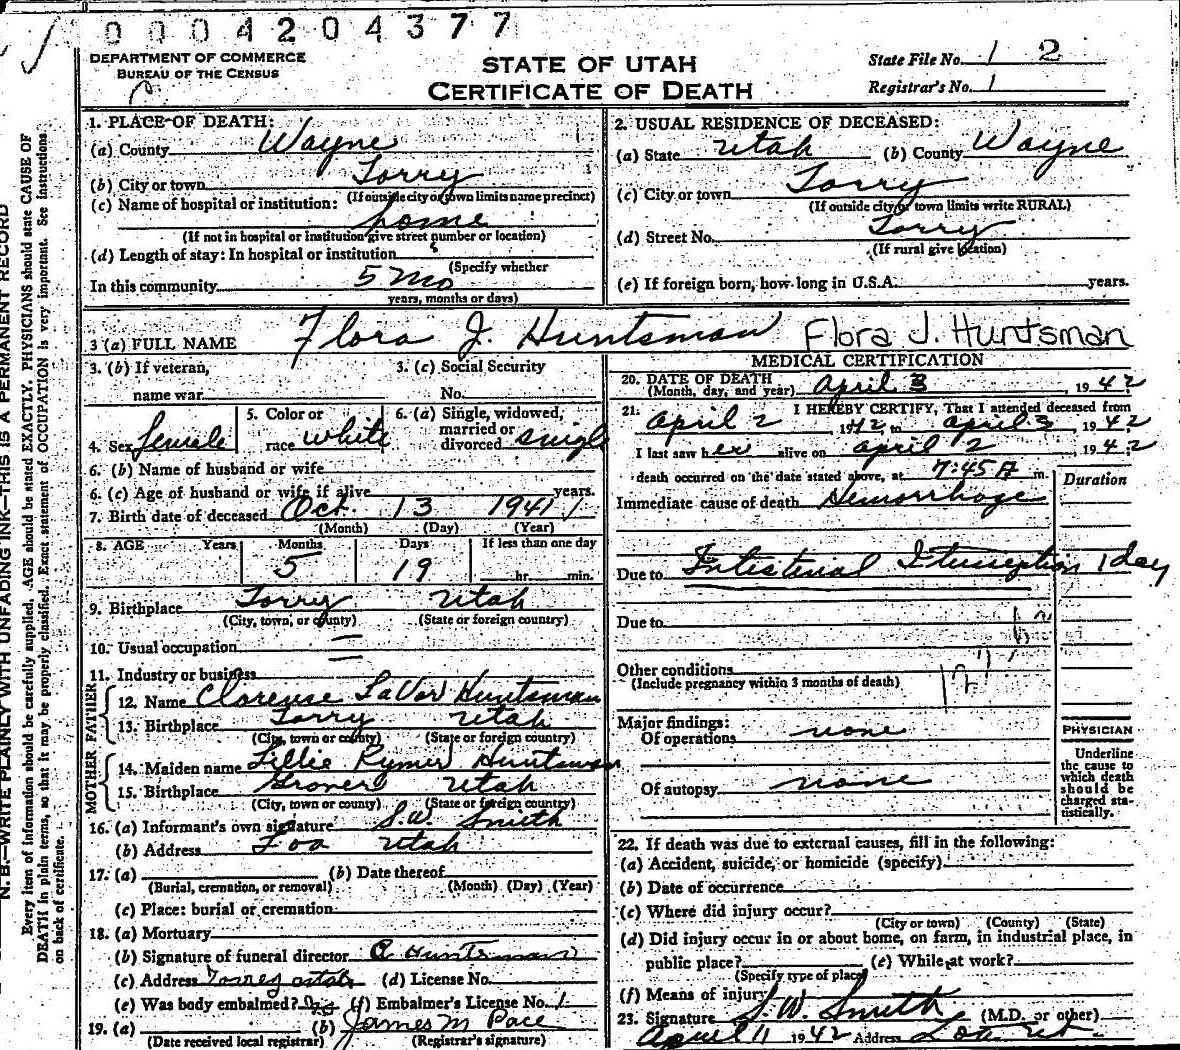 0004204377
DEPARTMENT OF COMMERCE
BUREAU OF THE CENSUS
STATE OF UTAH
CERTIFICATE OF DEATH
State File No. 1 2
Registrar's No. 1
N. B.—WRITE PLAINLY WITH UNFADING INK—THIS IS A PERMANENT RECORD
Every item of information should be carefully supplied. AGE should be stated EXACTLY. PHYSICIANS should state CAUSE OF
DEATH in plain terms, so that it may be properly classified. Exact statement of OCCUPATION is very important. See instructions
on back of certificate.
1. PLACE OF DEATH:
(a) County Wayne
(b) City or town Torry
(If outside city or town limits name precinct)
(c) Name of hospital or institution:
home
(If not in hospital or institution give street number or location)
(d) Length of stay: In hospital or institution
(Specify whether
In this community 5 Mo
years, months or days)
2. USUAL RESIDENCE OF DECEASED:
(a) State Utah (b) County Wayne
(c) City or town Torry
(If outside city or town limits write RURAL)
(d) Street No. Torry
(If rural give location)
(e) If foreign born, how long in U.S.A. years.
3 (a) FULL NAME Flora J. Huntsman Flora J. Huntsman
3. (b) If veteran,
name war
3. (c) Social Security
No.
4. Sex female
5. Color or
race white
6. (a) Single, widowed,
married or
divorced single
6. (b) Name of husband or wife
6. (c) Age of husband or wife if alive years.
7. Birth date of deceased Oct. 13 1941
(Month) (Day) (Year)
8. AGE Years Months Days If less than one day
5 19 hr. min.
9. Birthplace Torry Utah
(City, town, or county) (State or foreign country)
10. Usual occupation
11. Industry or business
FATHER
12. Name Clorense LaVor Huntsman
13. Birthplace Torry Utah
(City, town or county) (State or foreign country)
MOTHER
14. Maiden name Lillie Rymer Huntsman
15. Birthplace Grover Utah
(City, town or county) (State or foreign country)
16. (a) Informant's own signature S.W. Smith
(b) Address Loa Utah
17. (a) (b) Date thereof
(Burial, cremation, or removal) (Month) (Day) (Year)
(c) Place: burial or cremation
18. (a) Mortuary
(b) Signature of funeral director Huntsman
(c) Address Torrey Utah (d) License No.
(e) Was body embalmed? No (f) Embalmer's License No.
19. (a) (b) James M Pace
(Date received local registrar) (Registrar's signature)
MEDICAL CERTIFICATION
20. DATE OF DEATH
(Month, day, and year) April 3, 1942
21. I HEREBY CERTIFY, That I attended deceased from
April 2, 1942 to April 3, 1942
I last saw her alive on April 2, 1942
death occurred on the date stated above, at 7:45 A m.
Duration
Immediate cause of death Hemorrhage
Due to Intestinal 1 day
Due to
Other conditions
(Include pregnancy within 3 months of death)
Major findings:
Of operations none
Of autopsy none
PHYSICIAN
Underline
the cause to
which death
should be
charged sta-
tistically.
22. If death was due to external causes, fill in the following:
(a) Accident, suicide, or homicide (specify)
(b) Date of occurrence
(c) Where did injury occur?
(City or town) (County) (State)
(d) Did injury occur in or about home, on farm, in industrial place, in
public place? (e) While at work?
(Specify type of place)
(f) Means of injury
23. Signature S.W. Smith (M.D. or other)
April 11 1942 Address Loa Ut.